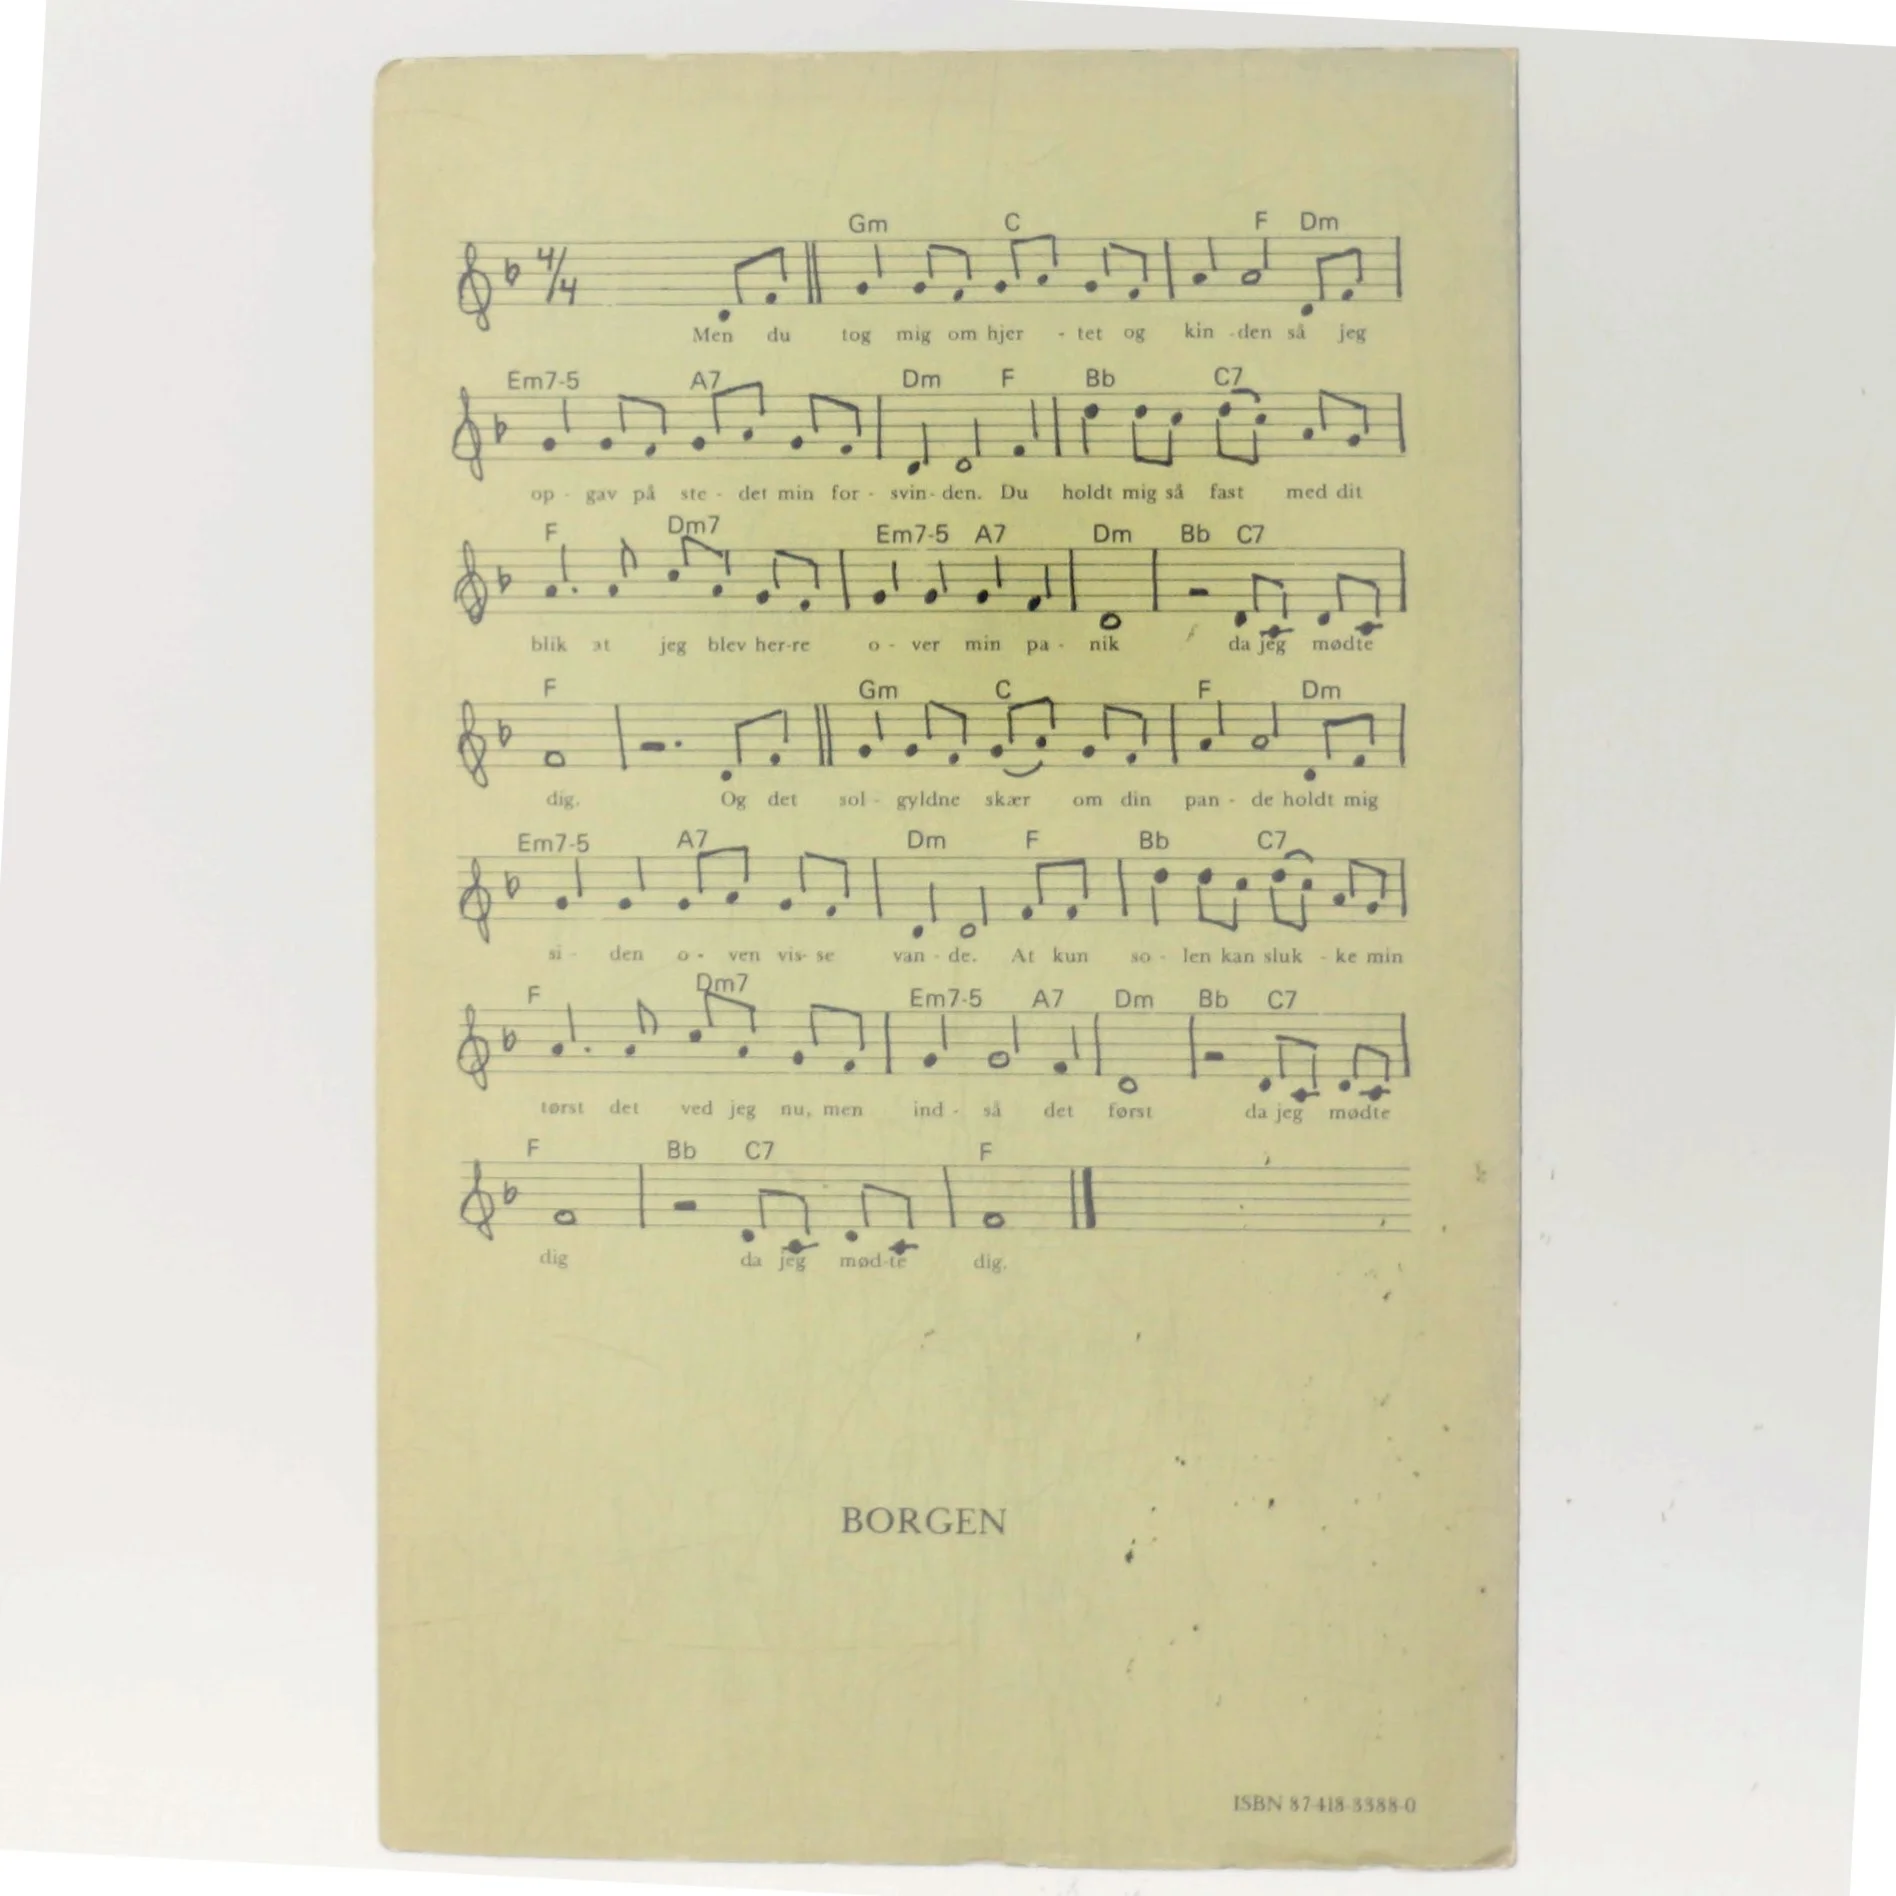 Gm C F Dm
4/4
Men du tog mig om hjer - tet og kin - den så jeg
Em7-5 A7 Dm F Bb C7
op - gav på ste - det min for - svin - den. Du holdt mig så fast med dit
F Dm7 Em7-5 A7 Dm Bb C7
blik at jeg blev her-re o - ver min pa - nik da jeg mødte
F Gm C F Dm
dig. Og det sol - gyldne skær om din pan - de holdt mig
Em7-5 A7 Dm F Bb C7
si - den o - ven vis- se van - de. At kun so - len kan sluk - ke min
F Dm7 Em7-5 A7 Dm Bb C7
tørst det ved jeg nu, men ind - så det først da jeg mødte
F Bb C7 F
dig da jeg mød-te dig.
BORGEN
ISBN 87-418-3388-0